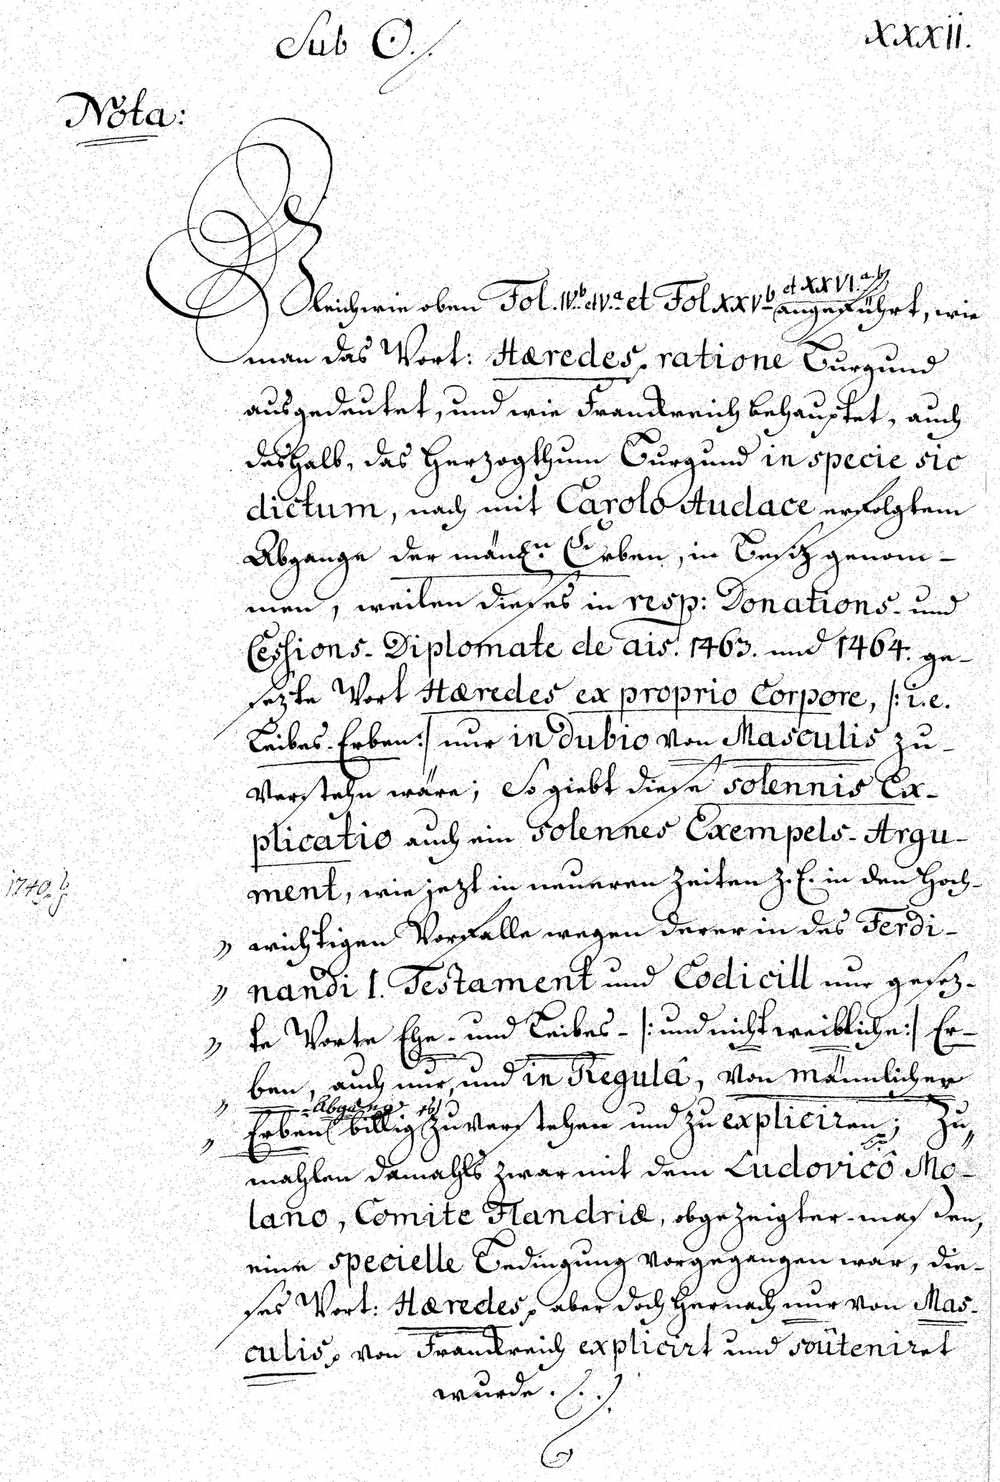 Sub O./.
XXXII.
Nota:
et XXVI. a. b.
Gleichwie oben Fol. IV.b et V.a et Fol XXV b angeführt, wie
man das Wort: Hæredes, ratione Burgund
ausgedeutet, und wie Franckreich behauptet, auch
deshalb, das Herzogthum Burgund in specie sic
dictum, nach mit Carolo Audace erfolgtem
Abgange der mänl.n Erben, in Besitz genom-
men, weilen dieses in resp: Donations- und
Cessions-Diplomate de ais. 1463. und 1464. ge-
sezte Wort Hæredes ex proprio Corpore, /: i. e.
Leibes-Erben :/ nur in dubio von Masculis zu
verstehn wäre; So giebt diese solennis Ex-
plicatio auch ein solennes Exempels-Argu-
ment, wie jezt in neueren Zeiten z. E. in den Hoch-
1740.
" wichtigen Vorfalle wegen derer in des Ferdi-
" nandi I. Testament und Codicill nur gesez-
" te Worte Ehe- und Leibes- /: und nicht weibliche :/ Er-
" ben, auch nur, und in Regulâ, von männlicher
-Abgang
" Erben billig zu verstehen und zu expliciren; Zu
mahlen damahls zwar mit dem Ludovicô Mo-
lano, Comite Flandriæ, obgezeigter-massen,
eine specielle Bedingung vorgegangen war, die-
ses Wort: Hæredes, aber doch hernach nur von Mas-
culis, von Franckreich explicirt und soûteniret
wurde. /.